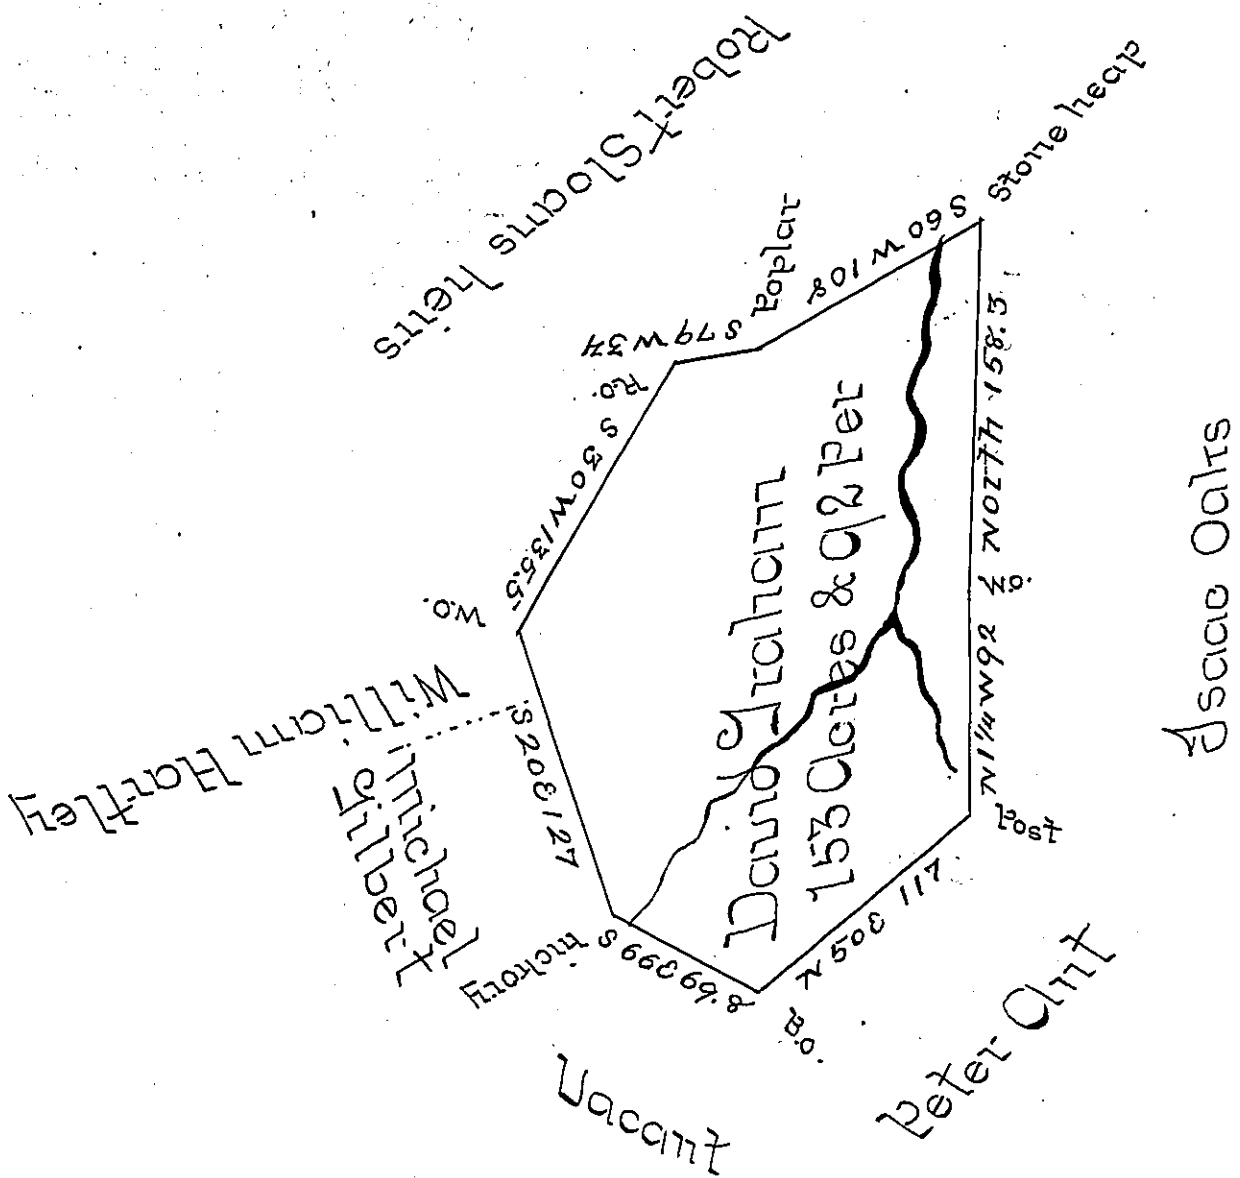 Robert Sloans heirs
Stone heap
S 60 W 108
Poplar
S 79 W 34
R.o.
S 30 W 135.5
W.o.
William Hartley
Michael
Gilbert
S 20 E 127
Hickory
S 66 E 69.8
Vacant
B.o.
N 50 E 117
Peter Ant
Post
N 1¼ W 92
North 158.3
Isaac Oaks
David Graham
153 Acres & 92 Per